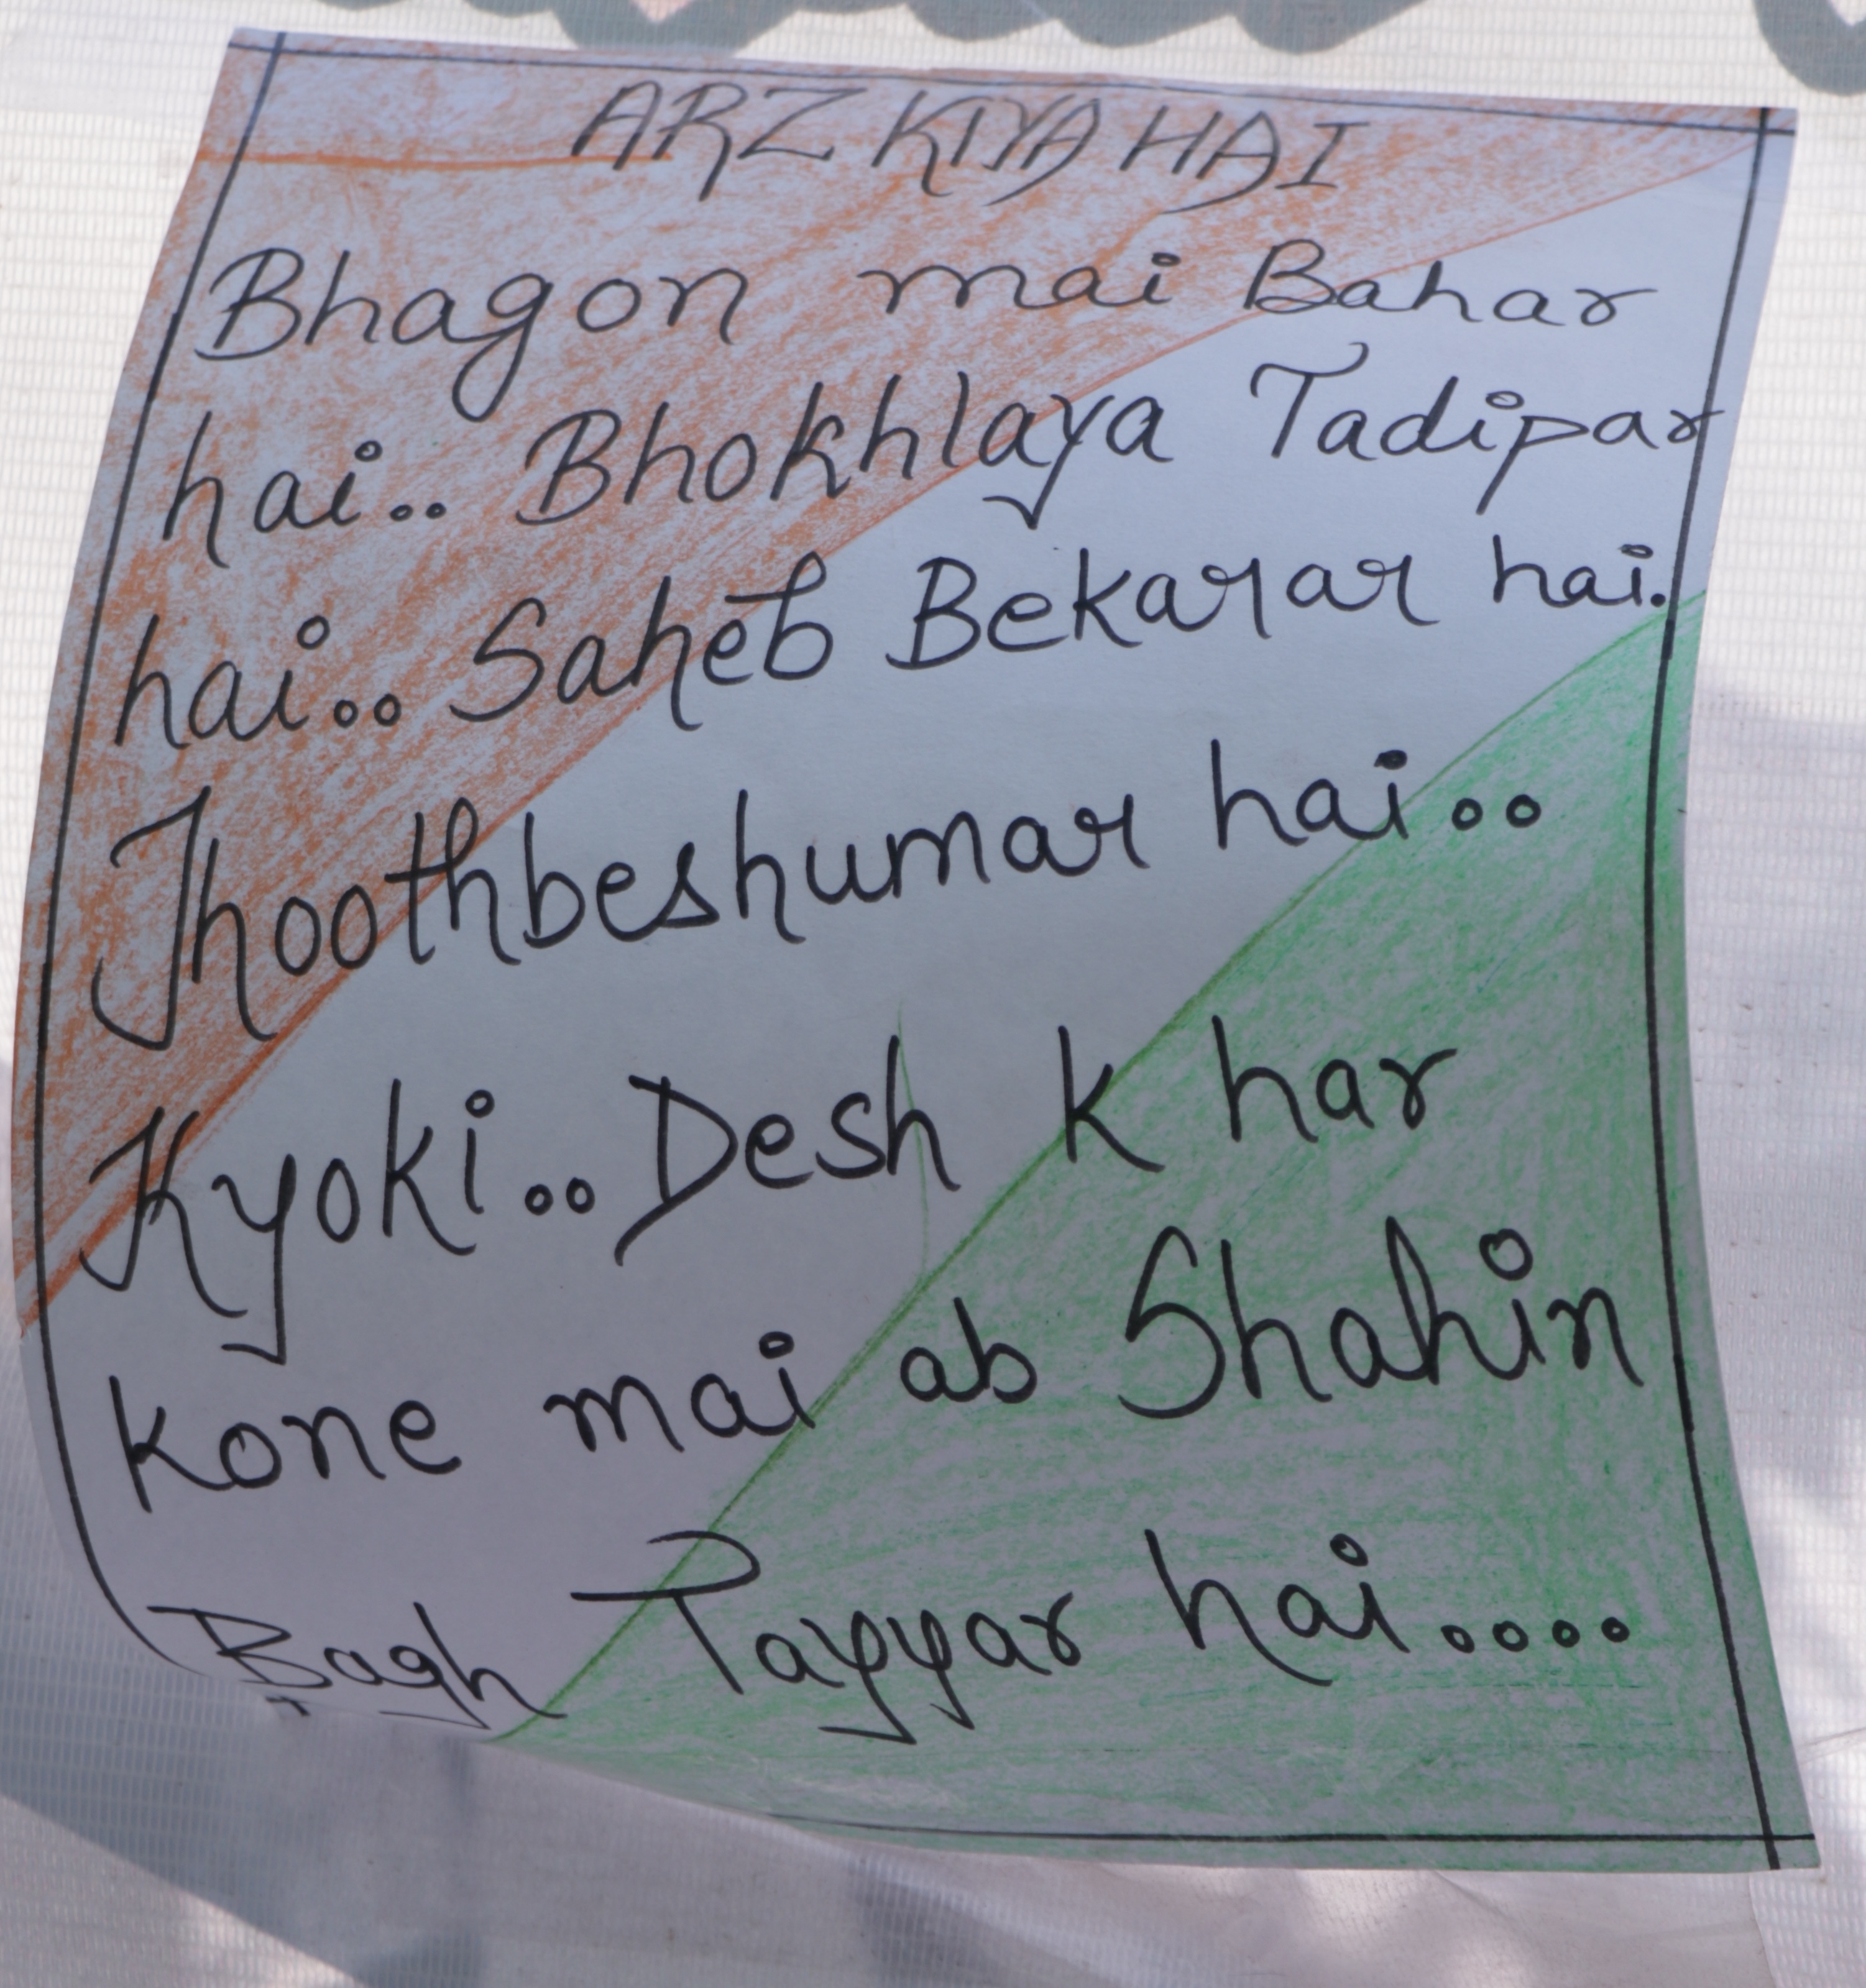 ARZ KIYA HAI
Bhagon mai Bahar
hai.. Bhokhlaya Tadipar
hai.. Saheb Bekarar hai.
Jhoothbeshumar hai..
Kyoki.. Desh k har
kone mai ab Shahin
Bagh Tayyar hai....